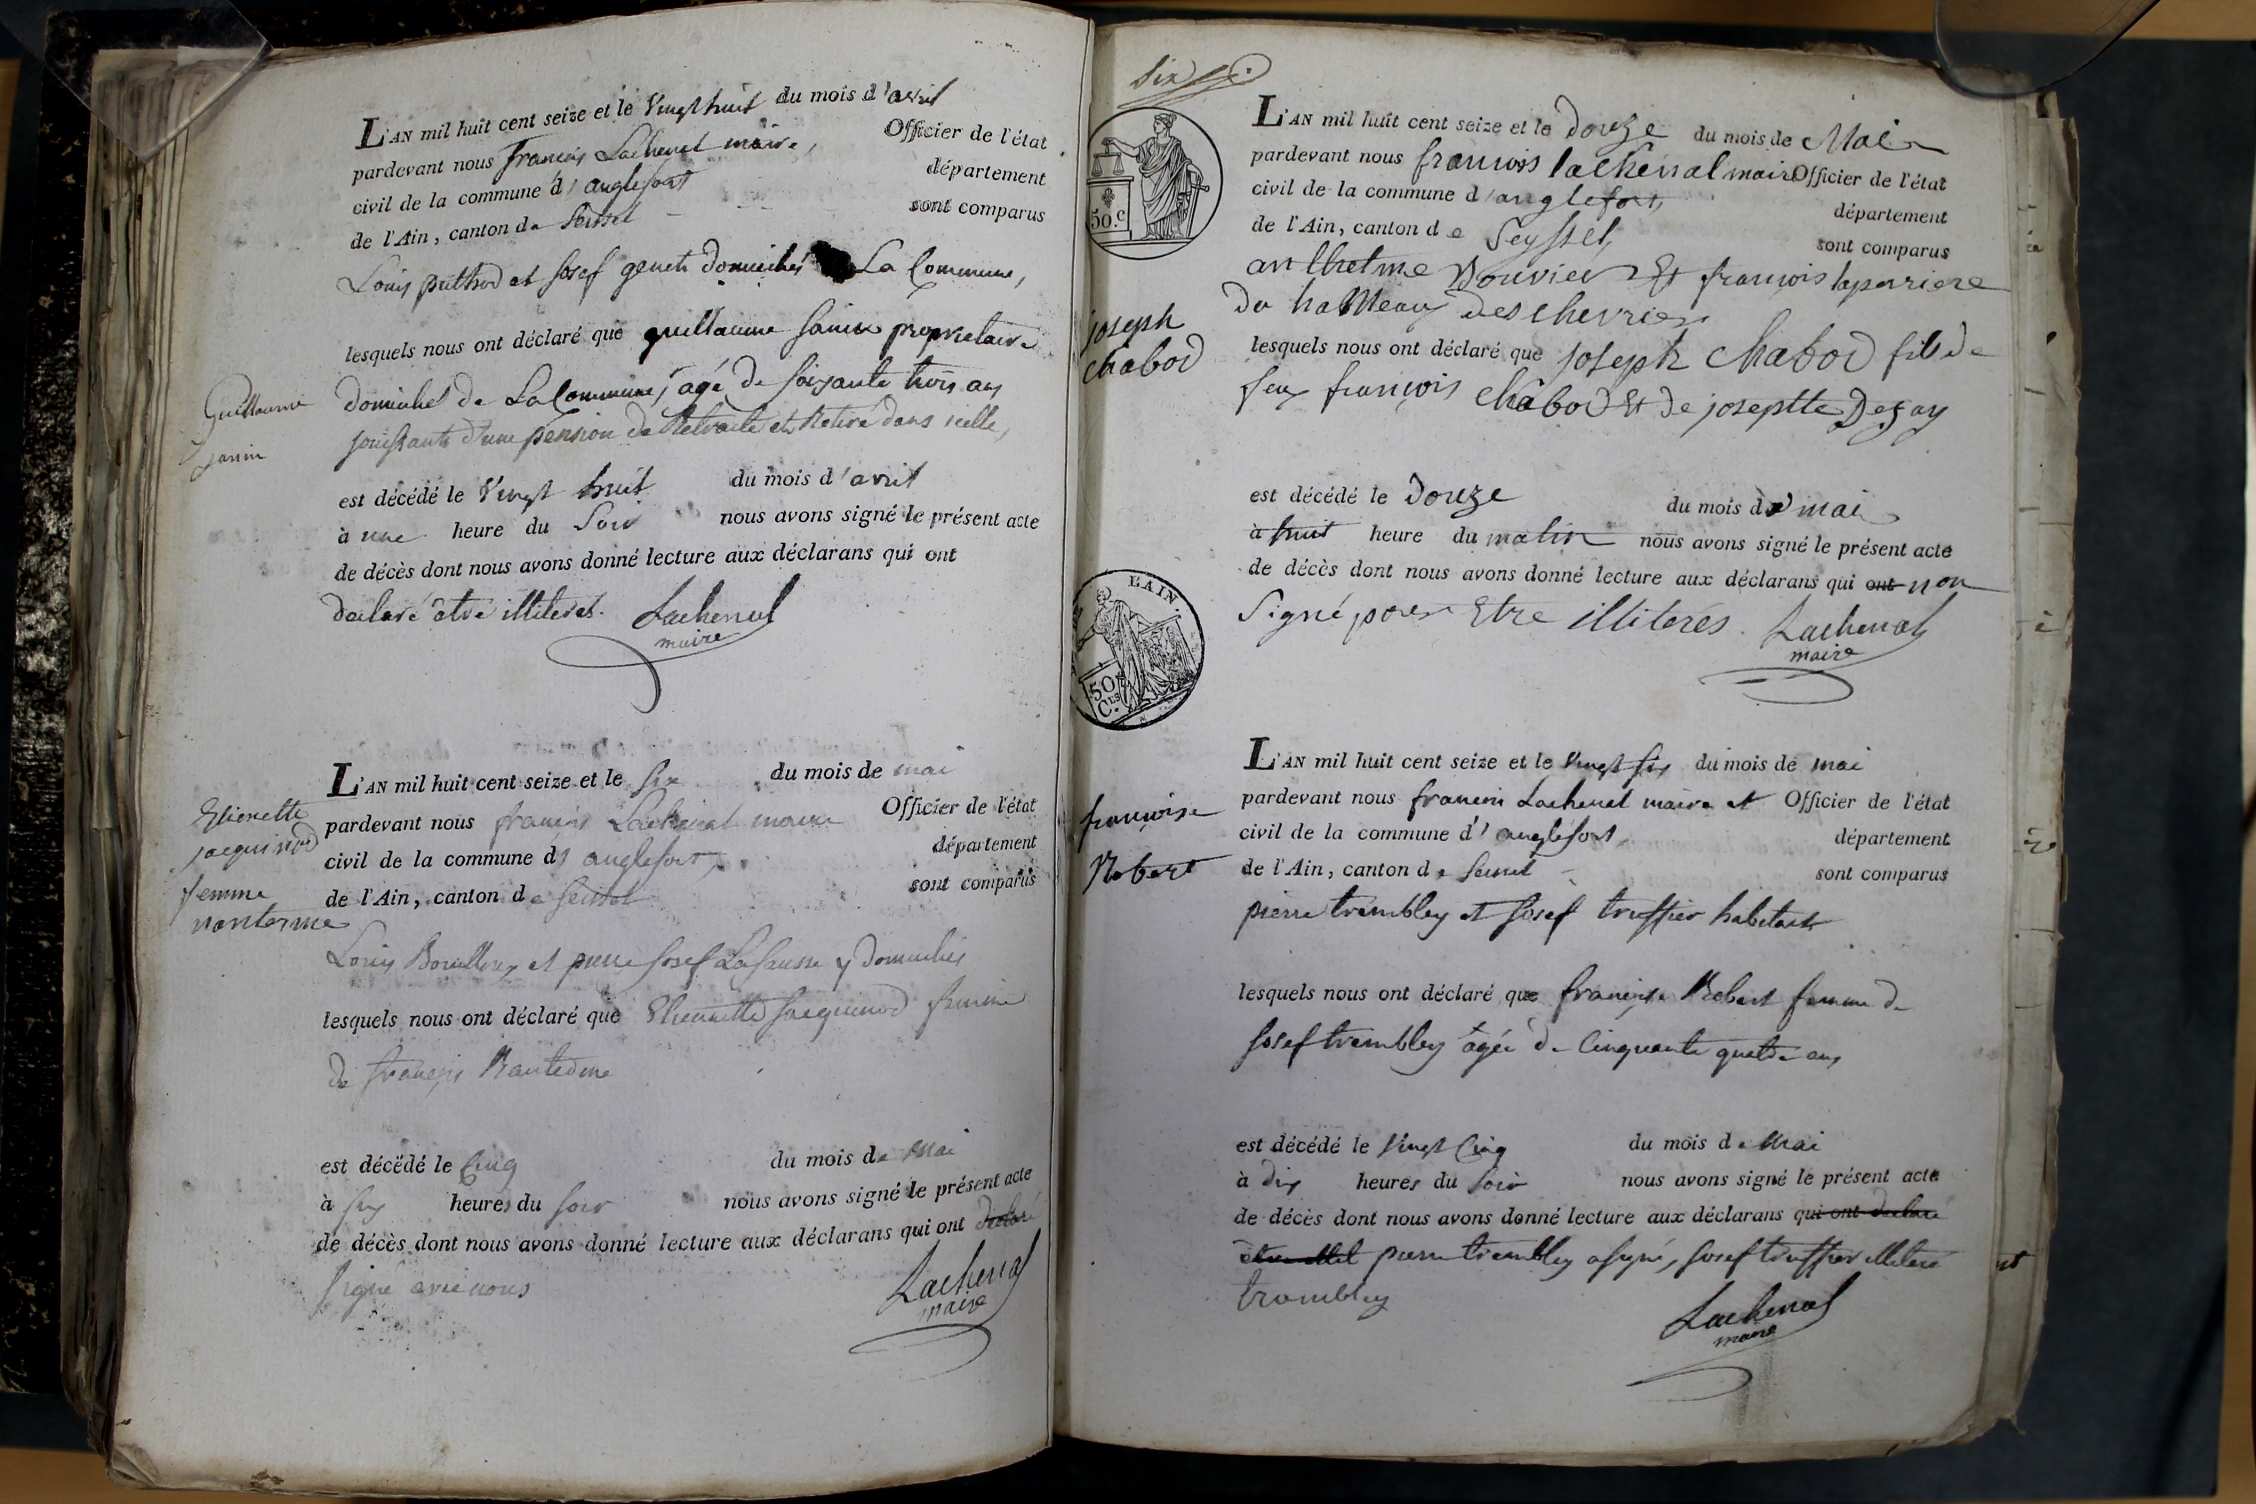 L'AN mil huit cent seize et le Vingt huit du mois d'avril
pardevant nous françois Lachenal maire, Officier de l'état
civil de la commune d'anglefort département
de l'Ain, canton de Seissel sont comparus
Louis puthod et Josef genets domiciliés La Commune,
lesquels nous ont déclaré que guillaume Janin proprietaire
Guillaume
janin
domicilié de La Commune, agé de soixante trois ans
jouissants d'une pension de Retraite et Retiré dans icelle,
est décédé le Vingt huit du mois d'avril
à une heure du Soir nous avons signé le présent acte
de décès dont nous avons donné lecture aux déclarans qui ont
declaré être illiteret. Lachenal
maire
L'AN mil huit cent seize et le six du mois de mai
Etienette
jacquinod
femme
nanterme
pardevant nous françois Lachenal maire Officier de l'état
civil de la commune d'anglefort, département
de l'Ain, canton de Seissel sont comparus
Louis et pierre Josef Lafausse y domiciliés
lesquels nous ont déclaré que Etienette Jacquinod femme
de françois Nanterme
est décédé le Cinq du mois de Mai
à six heures du soir nous avons signé le présent acte
de décès dont nous avons donné lecture aux déclarans qui ont declaré
signé avec nous Lachenal
maire
Six
50.c
L'AN mil huit cent seize et le Douze du mois de Mai
pardevant nous francois lachenal maire Officier de l'état
civil de la commune d'anglefort, département
de l'Ain, canton de Seyssel, sont comparus
anthelme Bouvier Et françois laperriere
du hameau des chevriers
joseph
chabod
lesquels nous ont déclaré que joseph Chabod fils de
feu françois Chabod Et de josephtte Dezay
est décédé le Douze du mois de mai
à huit heure du matin nous avons signé le présent acte
de décès dont nous avons donné lecture aux déclarans qui ont non
Signé pour Etre illiterés. Lachenal
maire
L'AIN.
50
C.ES
L'AN mil huit cent seize et le Vingt six du mois de mai
pardevant nous françois Lachenal maire et Officier de l'état
civil de la commune d'anglefort, département
de l'Ain, canton de Seissel sont comparus
françoise
Robert
pierre trembley et Josef truffier habitants
lesquels nous ont déclaré que françoise Robert femme de
Josef trembley agée de Cinquante quatre ans
est décédé le Vingt Cinq du mois de Mai
à dix heures du soir nous avons signé le présent acte
de décès dont nous avons donné lecture aux déclarans qui ont declaré
pierre trembley a signé, Josef truffier illiteré
trembley Lachenal
maire